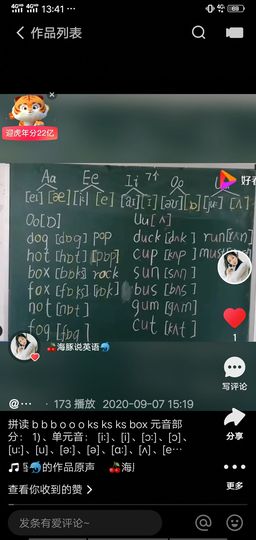 13:41
作品列表
迎虎年分22亿
Aa Ee Ii 7个 Oo
[eɪ] [æ] [i:] [e] [aɪ] [ɪ] [əʊ] [ɒ] [ju:] [ʌ]
Oo[ɒ] Uu[ʌ]
dog [dɒg] pop duck [dʌk] run[rʌn]
hot [hɒt] [pɒp] cup [kʌp] must
box [bɒks] rock sun [sʌn]
fox [fɒks] [rɒk] bus [bʌs]
not [nɒt] gum [gʌm]
fog [fɒg] cut [kʌt]
好看
1
🍒海豚说英语🐬
写评论
@⋯ · 173 播放 2020-09-07 15:19
拼读 b b b o o o ks ks ks box 元音部
分： 1)、单元音： [i:], [i], [ɔ:], [ɔ],
[u:], [u], [ə:], [ə], [ɑ:], [ʌ], [e…
分享
🐬的作品原声 🍒海
更多
查看你收到的赞 >
发条有爱评论~